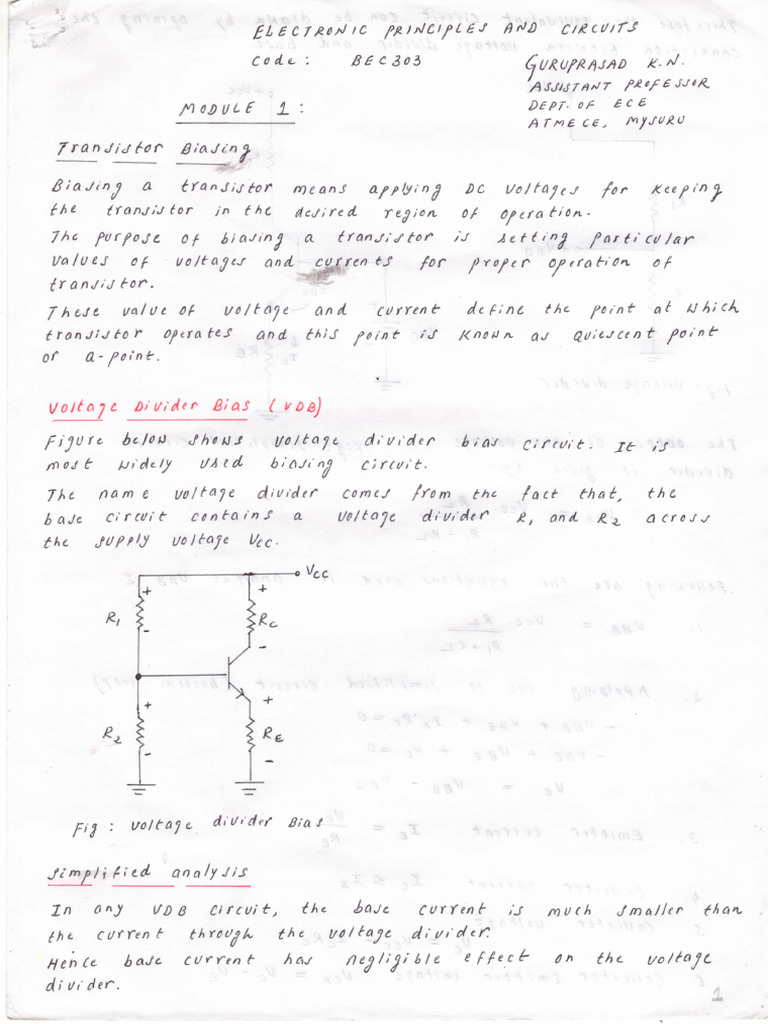 ELECTRONIC PRINCIPLES AND CIRCUITS
Code: BEC303
GURUPRASAD K.N.
ASSISTANT PROFESSOR
DEPT. OF ECE
ATMECE, MYSURU
MODULE 1:
Transistor Biasing
Biasing a transistor means applying DC voltages for keeping
the transistor in the desired region of operation.
The purpose of biasing a transistor is setting particular
values of voltages and currents for proper operation of
transistor.
These value of voltage and current define the point at which
transistor operates and this point is known as quiescent point
or Q-point.
Voltage Divider Bias (VDB)
Figure below shows voltage divider bias circuit. It is
most widely used biasing circuit.
The name voltage divider comes from the fact that, the
base circuit contains a voltage divider R1 and R2 across
the supply voltage VCC.
VCC
+ +
R1 RC
- -
+ +
R2 RE
- -
Fig: Voltage divider Bias
Simplified analysis
In any VDB circuit, the base current is much smaller than
the current through the voltage divider.
Hence base current has negligible effect on the voltage
divider.
1